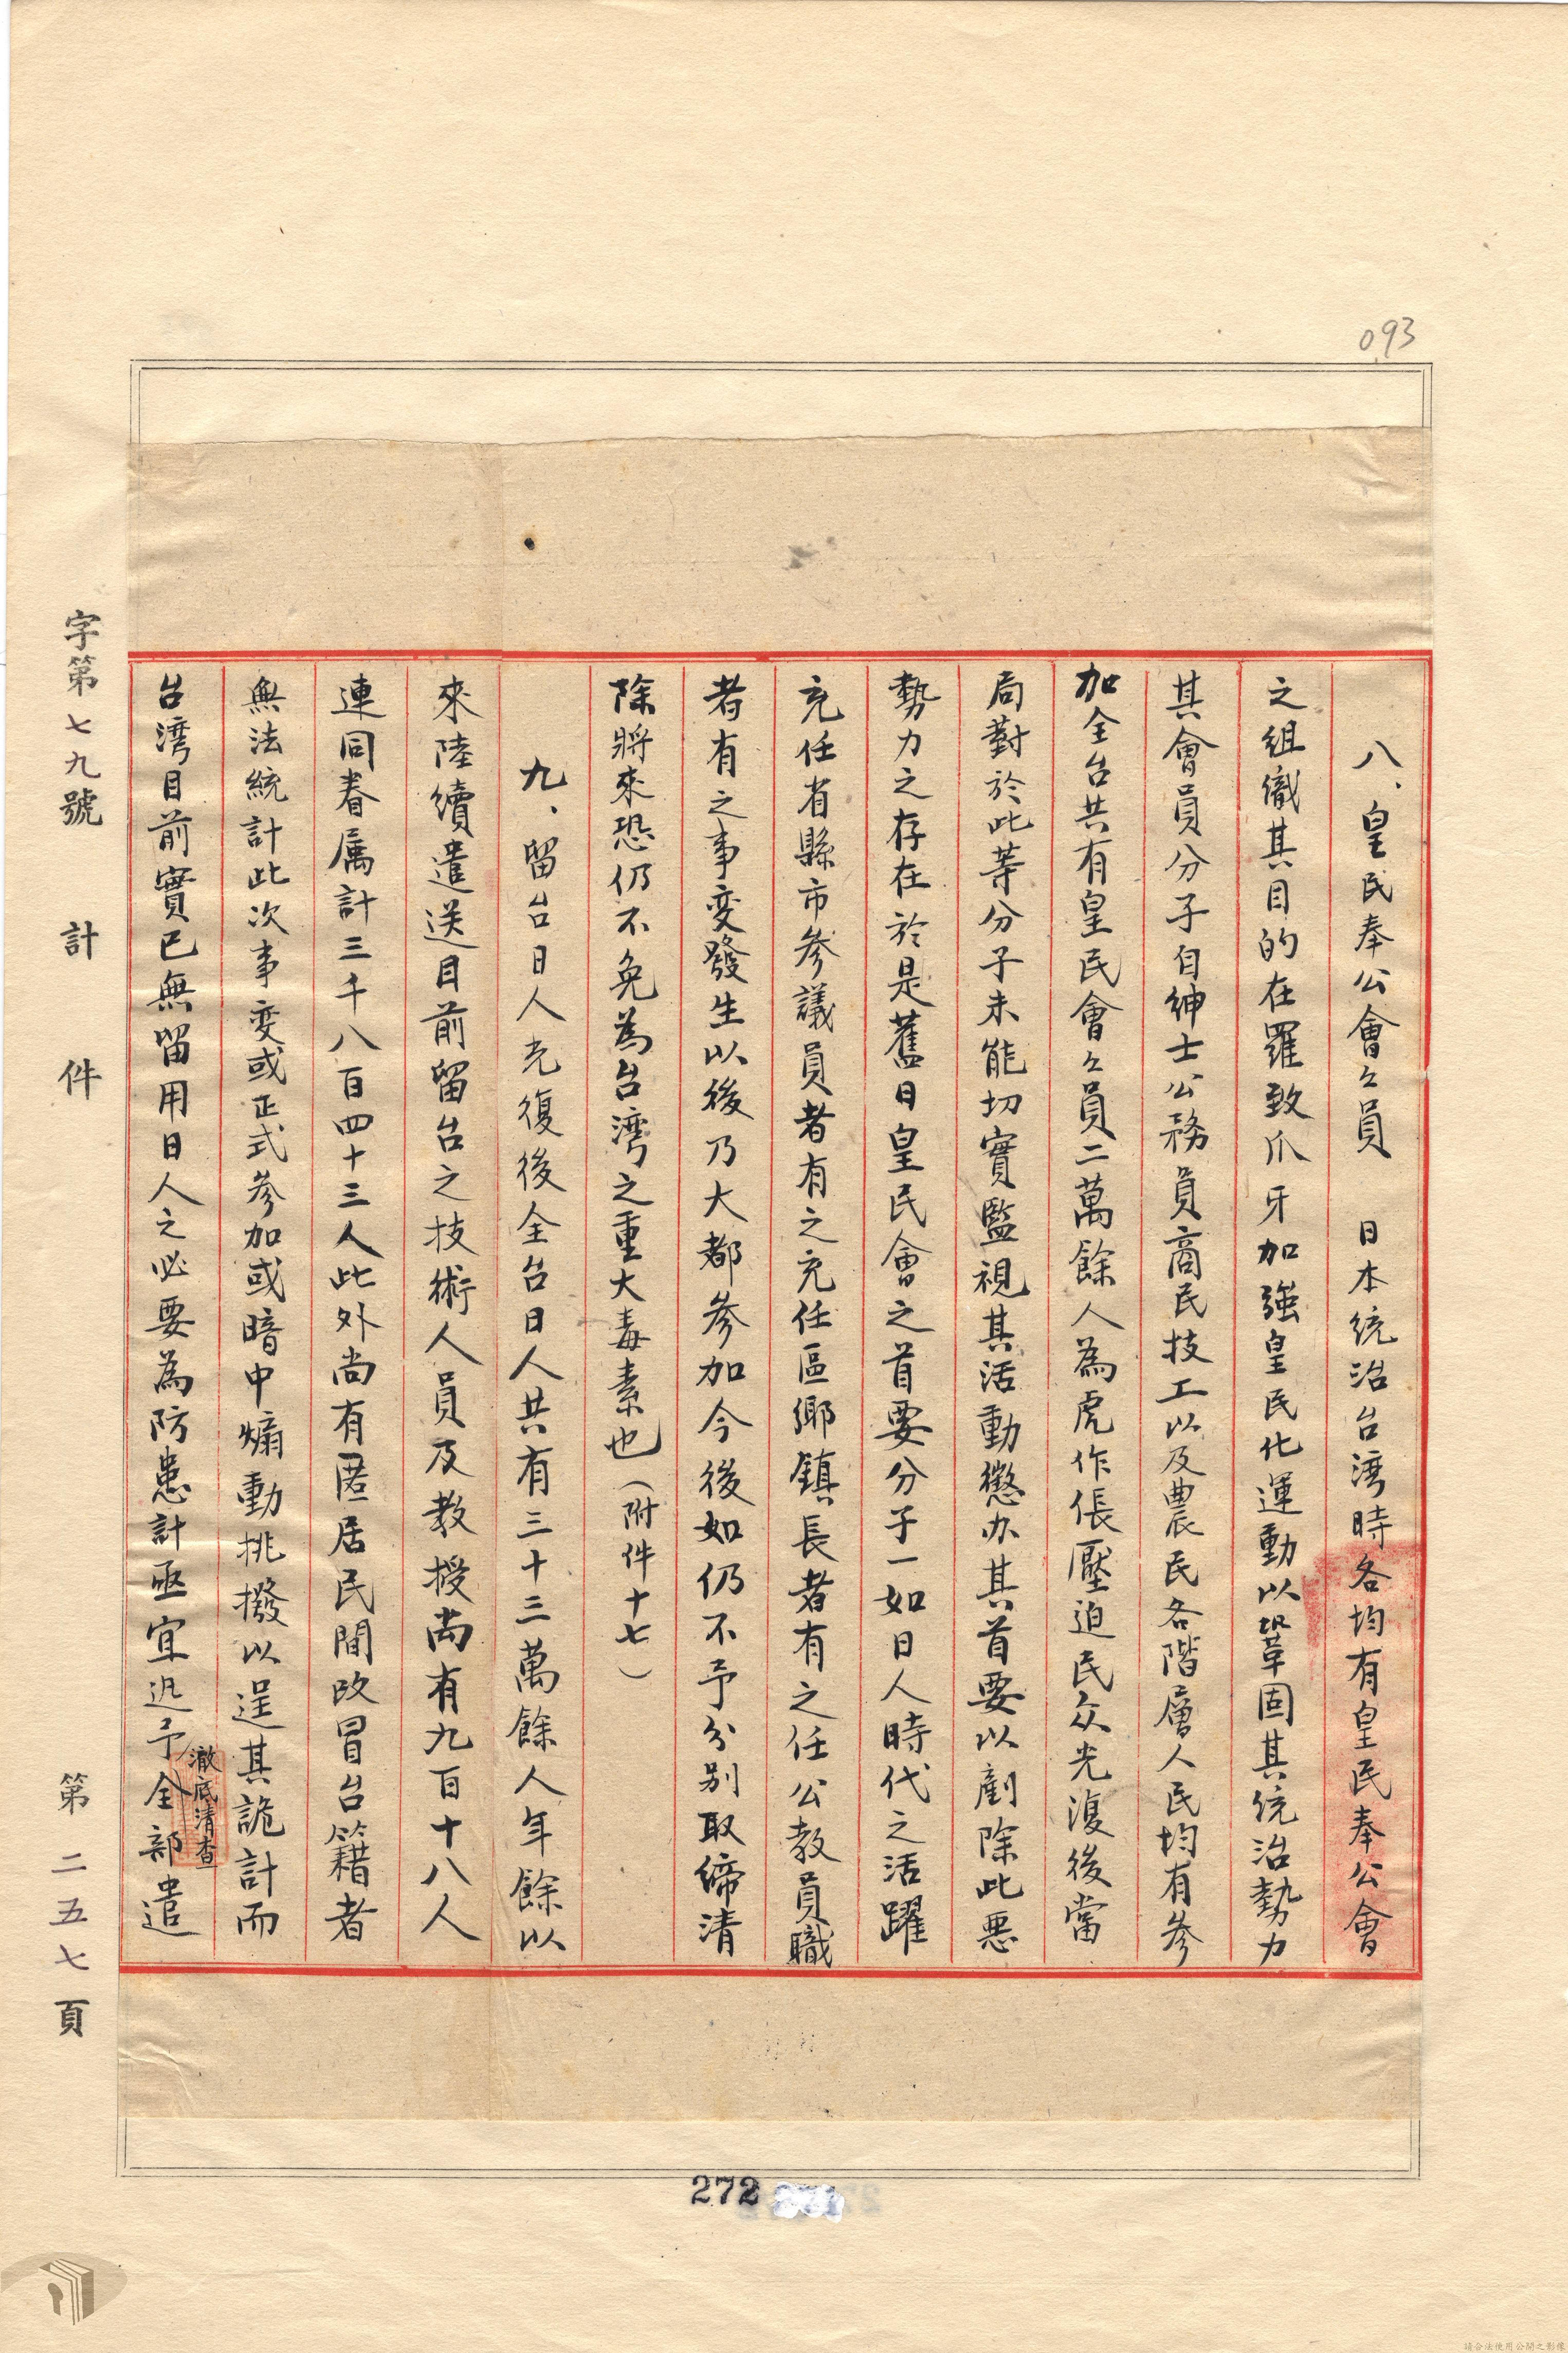 093
八、皇民奉公會々員　日本統治台湾時各均有皇民奉公會
之組織其目的在羅致爪牙加強皇民化運動以鞏固其統治勢力
其會員分子自紳士公務員商民技工以及農民各階層人民均有參
加全台共有皇民會々員二萬餘人為虎作倀壓迫民众光復後當
局對於此等分子未能切實監視其活動懲办其首要以剷除此惡
勢力之存在於是舊日皇民會之首要分子一如日人時代之活躍
充任省縣市參議員者有之充任區鄉鎮長者有之任公教員職
者有之事变發生以後乃大都參加今後如仍不予分别取締清
除將來恐仍不免為台湾之重大毒素也（附件十七）
九、留台日人光復後全台日人共有三十三萬餘人年餘以
來陸續遣送目前留台之技術人員及教授尚有九百十八人
連同眷属計三千八百四十三人此外尚有匿居民間改冒台籍者
無法統計此次事变或正式參加或暗中煽動挑撥以逞其詭計而
台湾目前實已無留用日人之必要為防患計亟宜迅予全部遣
澈底清查
字第七九號　計　件　第二五七頁
272
請合法使用公開之影像